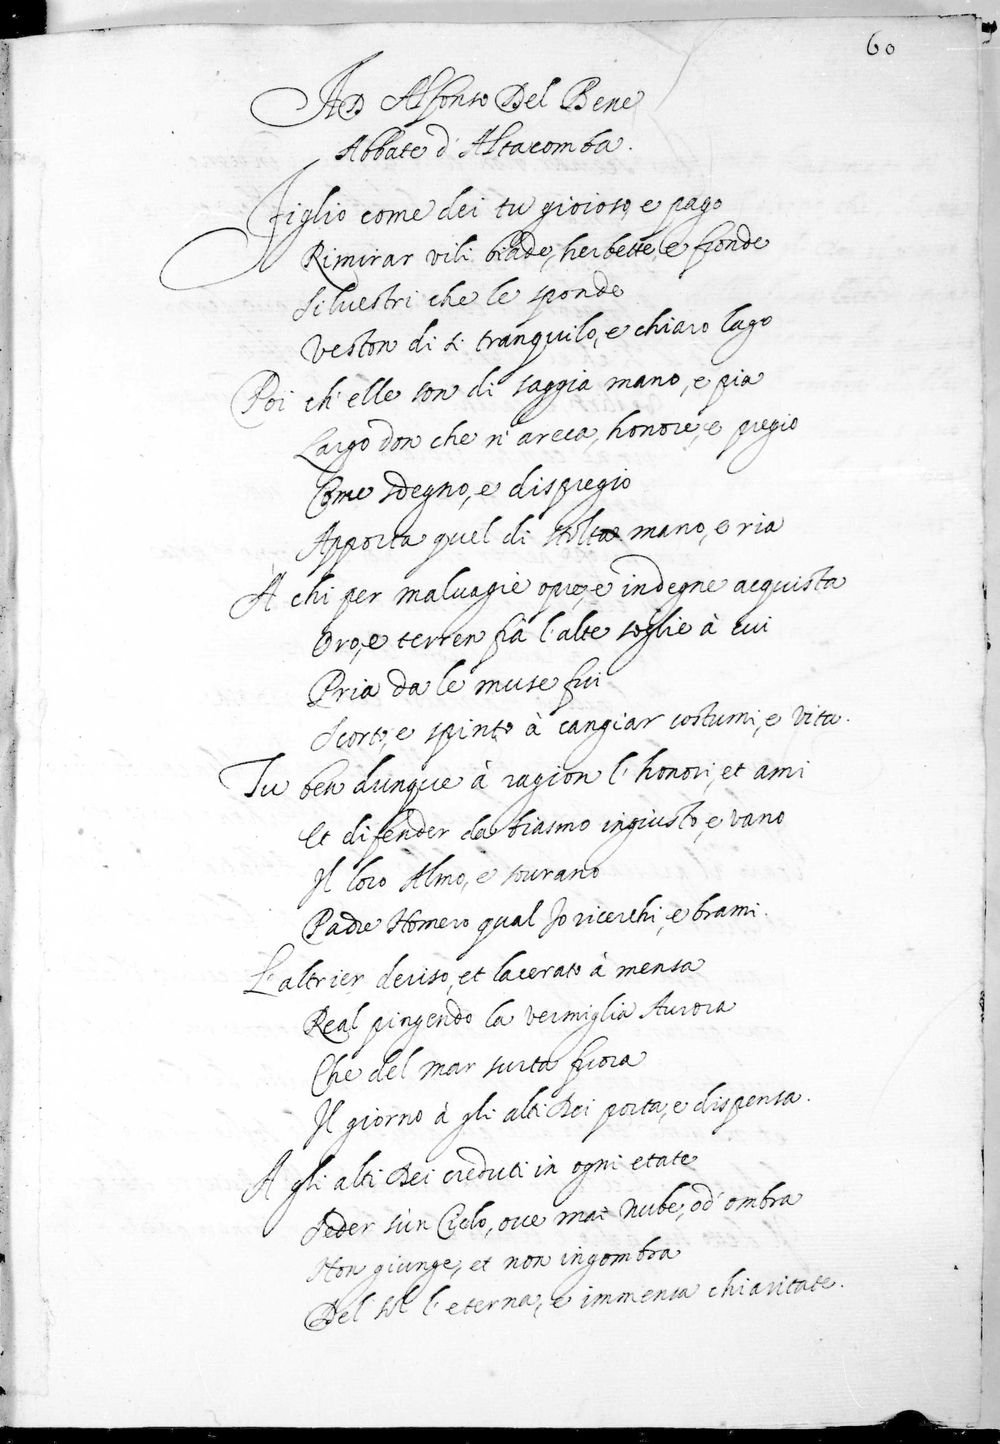 60
AD Alfonso Del Bene
Abbate d'Altacomba.
Figlio come dei tu gioioso, e pago
Rimirar vili biade, herbette, e fronde
Silvestri che le sponde
Veston di sì tranquilo, e chiaro lago
Poi ch'elle son di saggia mano, e pia
Largo don che n'areca, honore, e pregio
Come sdegno, e dispregio
Apporta quel di stolta mano, e ria
A chi per malvagie opre, e indegne acquista
Oro, e terren fia l'alte soglie à cui
Pria da le muse fui
Scorto, e spinto à cangiar costumi, e vita.
Tu ben dunque à ragion l'honori, et ami
Et difender da biasmo ingiusto, e vano
Il loro Almo, e sourano
Padre Homero qual Jo ricerchi, e brami.
L'altrier deriso, et lacerato à mensa
Real pingendo la vermiglia Aurora
Che del mar surta fuora
Il giorno à gli alti Dei porta, e dispensa.
A gli alti Dei creduti in ogni etate
Seder sù'n Cielo, oue mai Nube, od'ombra
Non giunge, et non ingombra
Del Sol l'eterna, e immensa chiaritate.